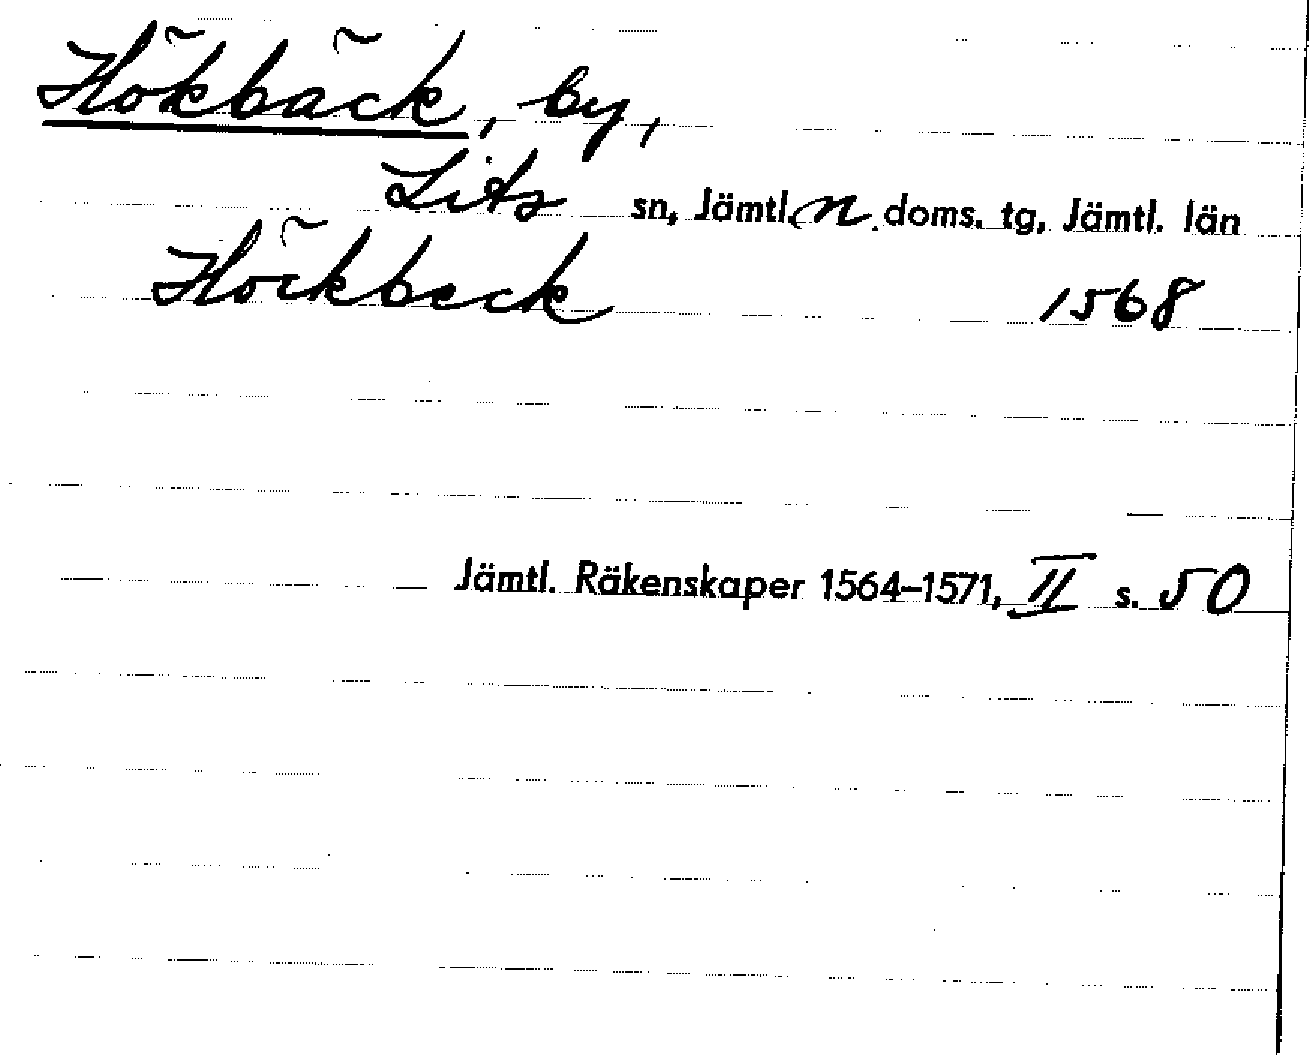 Hökbäck, by,
Lits sn, Jämtl. n. doms. tg, Jämtl. län
Höckbeck 1568
Jämtl. Räkenskaper 1564–1571, II s. 50